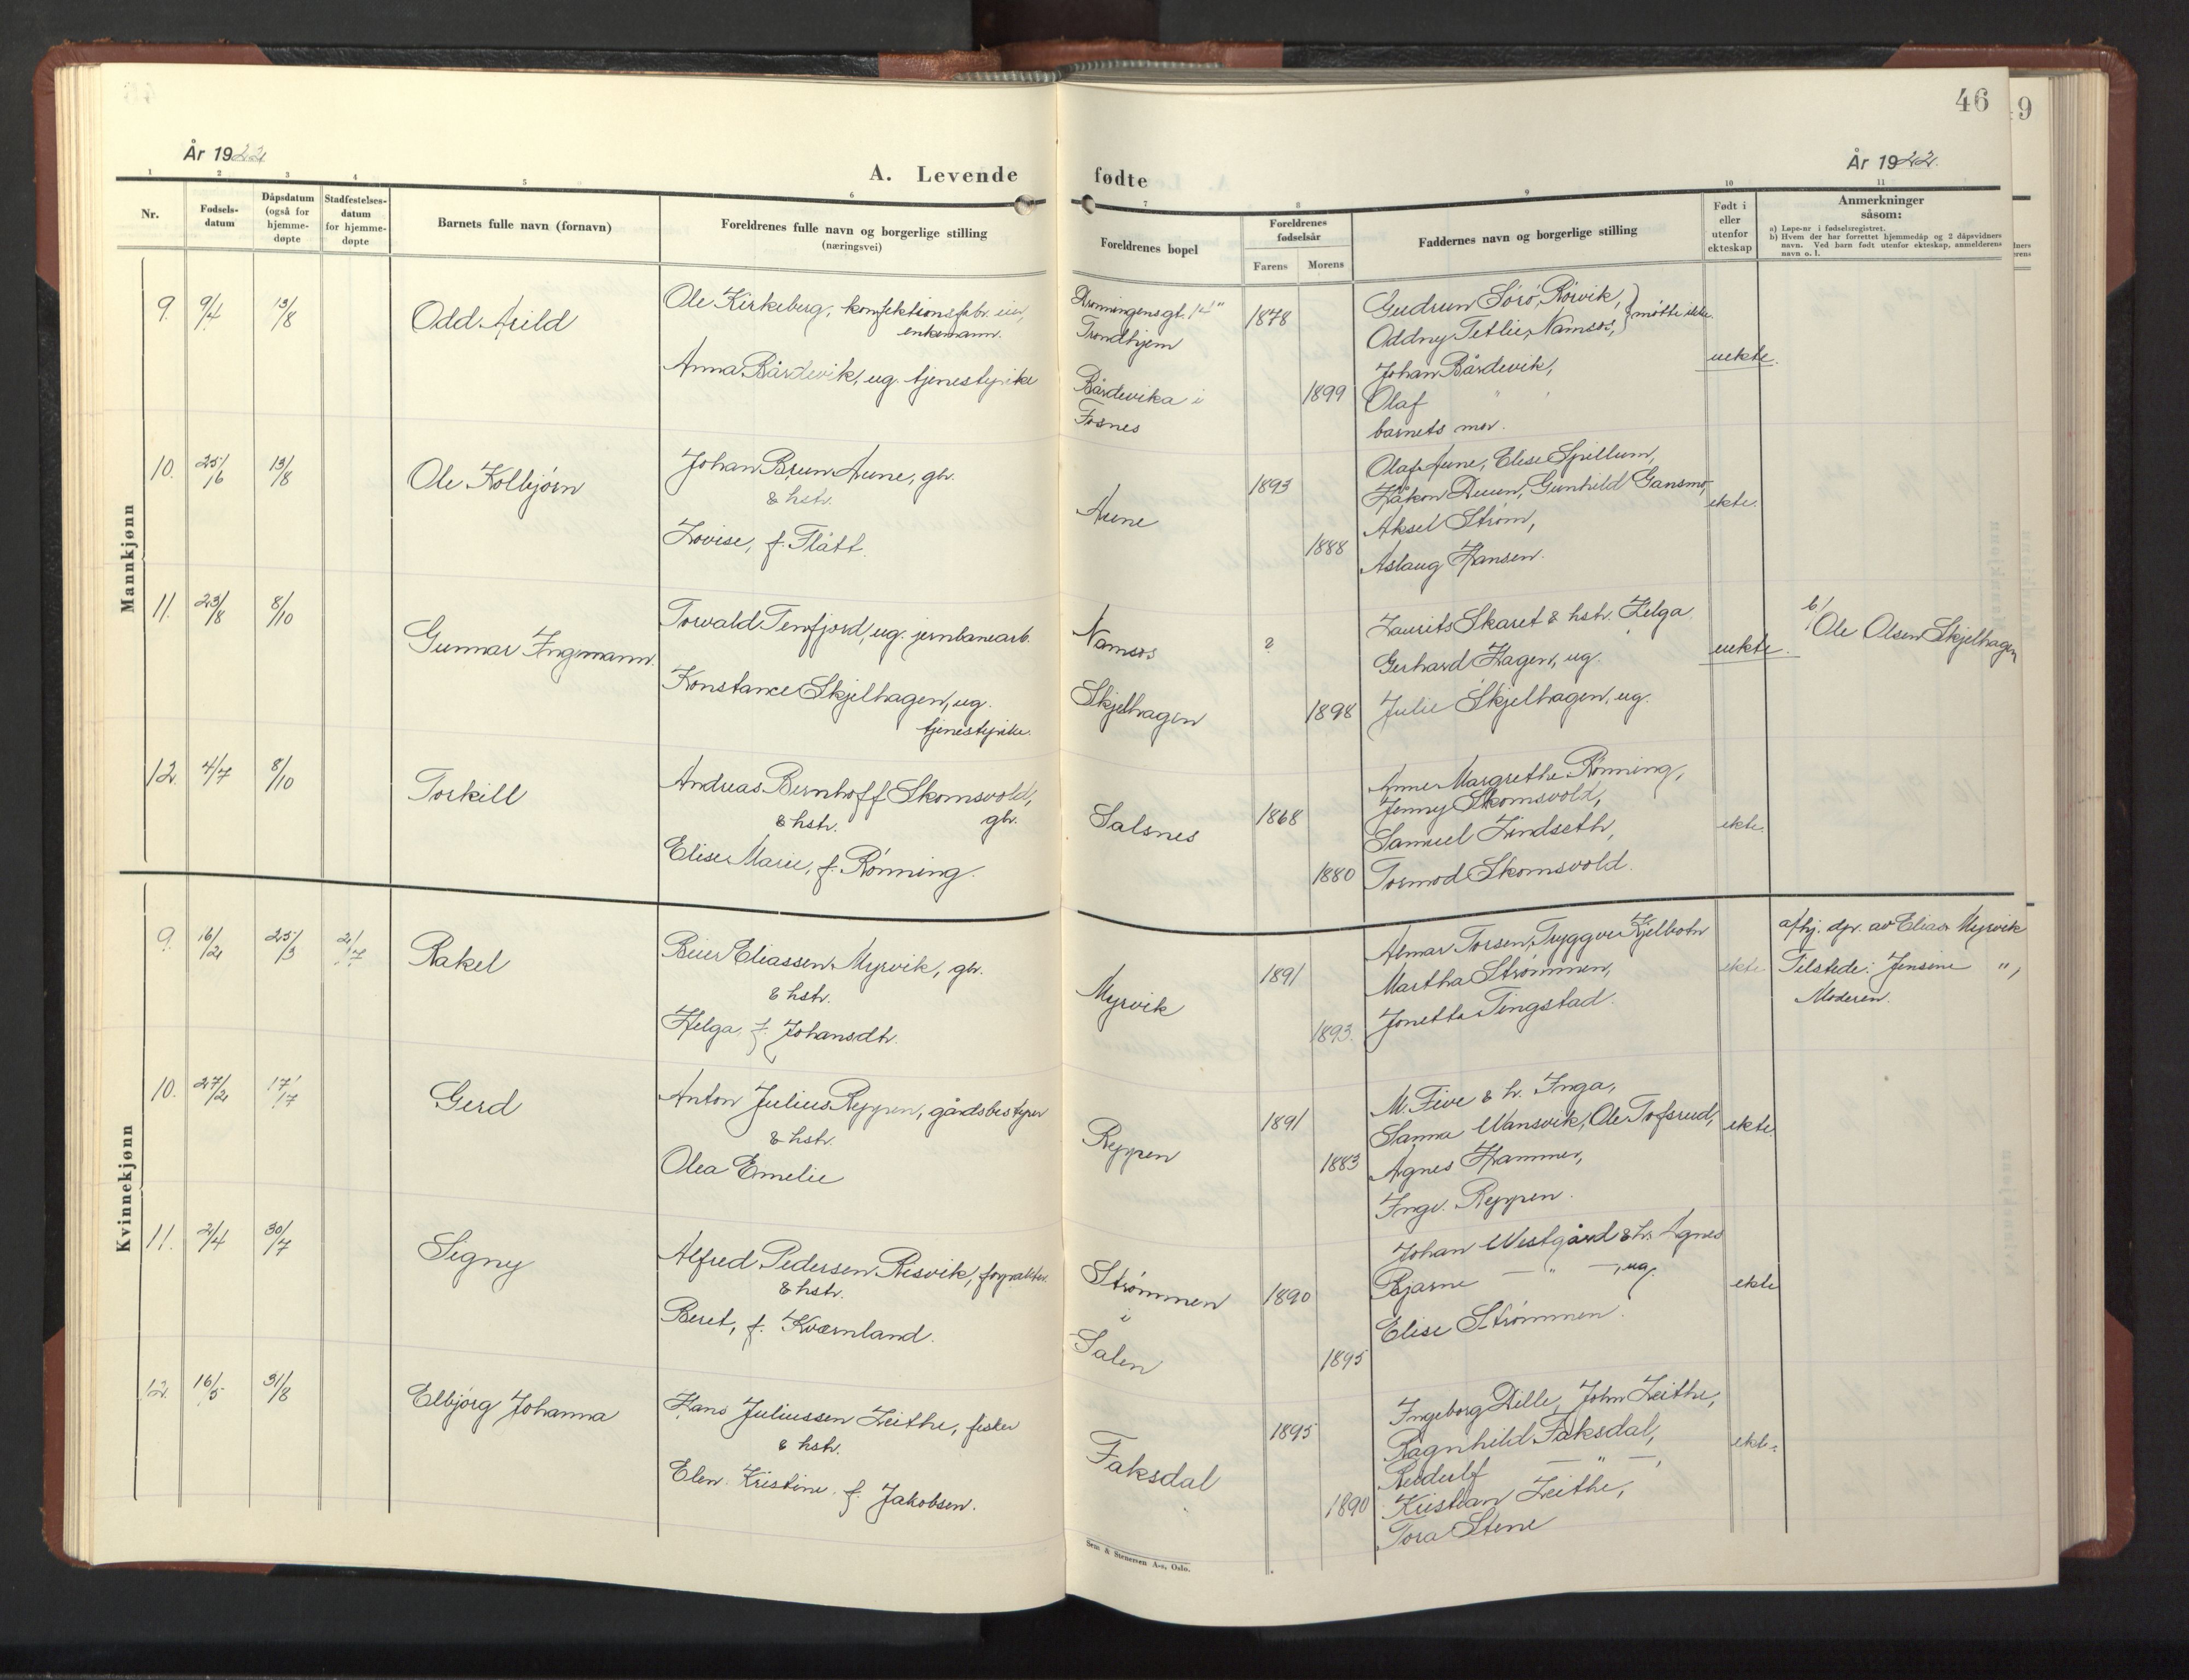 46
49
År 1922
År 1922.
A. Levende
fødte
1 2 3 4 5 6 7 8 9 10 11
Nr.
Fødsels-
datum
Dåpsdatum
(også for
hjemme-
døpte
Stadfestelses-
datum
for hjemme-
døpte
Barnets fulle navn (fornavn)
Foreldrenes fulle navn og borgerlige stilling
(næringsvei)
Foreldrenes bopel
Foreldrenes
fødselsår
Farens Morens
Faddernes navn og borgerlige stilling
Født i
eller
utenfor
ekteskap
Anmerkninger
såsom:
a) Løpe-nr i fødselsregistret.
b) Hvem der har forrettet hjemmedåp og 2 dåpsvidners
navn. Ved barn født utenfor ekteskap, anmelderens
navn o. l.
Mannkjønn
9. 9/4 13/8 Odd Arild
Ole Kirkeberg, konfektionsfabr. eier,
enkemann.
Anna Bårdevik, ug. tjenestepike
Dronningensgt.
Trondhjem
Bårdevika i
Fosnes
1878
1899
Gudrun Sørø, Rørvik, } møtte ikke.
Oddny Tetlie, Namsos,
Johan Bårdevik,
Olaf " "
barnets mor.
uekte.
10. 25/6 13/8 Ole Kolbjørn
Johan Brun Aune, gbr.
& hstr.
Lovise, f. Flått.
Aune
1893
1888
Olaf Aune, Elise Spillum,
Håkon Duun, Gunhild Gansmo,
Aksel Strøm,
Aslaug Hansen.
ekte.
11. 23/8 8/10 Gunnar Ingemann
Torvald Tennfjord, ug. jernbanearb.
Konstance Skjelhagen, ug.
tjenestepike.
Namsos
Skjelhagen
?
1898
Laurits Skaret & hstr. Helga
Gerhard Hagen, ug.
Julie Skjelhagen, ug.
uekte.
b/ Ole Olsen Skjelhagen
12. 4/7 8/10 Torkill
Andreas Bernhoff Skomsvold,
& hstr. gbr.
Elise Marie, f. Rønning.
Salsnes
1868
1880
Anne Margrethe Rønning,
Jenny Skomsvold,
Samuel Lindseth,
Tormod Skomsvold.
ekte.
Kvinnekjønn
9. 16/2 25/3 2/7 Rakel
Beier Eliassen Myrvik, gbr.
& hstr.
Helga, f. Johansdtr.
Myrvik
1891
1893.
Almar Torsen, Tryggve Kjelbotn
Martha Strømmen,
Jonetta Tingstad.
ekte
a/hj. dpr. av Elias Myrvik
Tilstede: Jensine ",
Moderen.
10. 27/2 17/7 Gerd
Anton Julius Reppen, gårdsbestyrer
& hstr.
Olea Emelie
Reppen
1891
1883
M. Five & h. Inga,
Sanna Wansvik, Ole Tofsrud,
Agnes Hammer,
Ingv. Reppen.
ekte.
11. 2/4 30/7 Signy
Alfred Pedersen Risvik, forvalter.
& hstr.
Beret, f. Kværnland.
Strømmen
i
Salen
1890
1895
Johan Westgård & h. Agnes
Bjarne — " —, ug.
Elise Strømmen.
ekte
12. 16/5 31/8 Elbjørg Johanna
Hans Juliussen Leithe, fisker
& hstr.
Elen Kristine f. Jakobsen.
Faksdal
1895
1890
Ingeborg Dille, John Leithe,
Ragnhild Faksdal,
Reidulf — " —,
Kristian Leithe,
Tora Stene
ekte.
Sem & Stenersen A-s, Oslo.